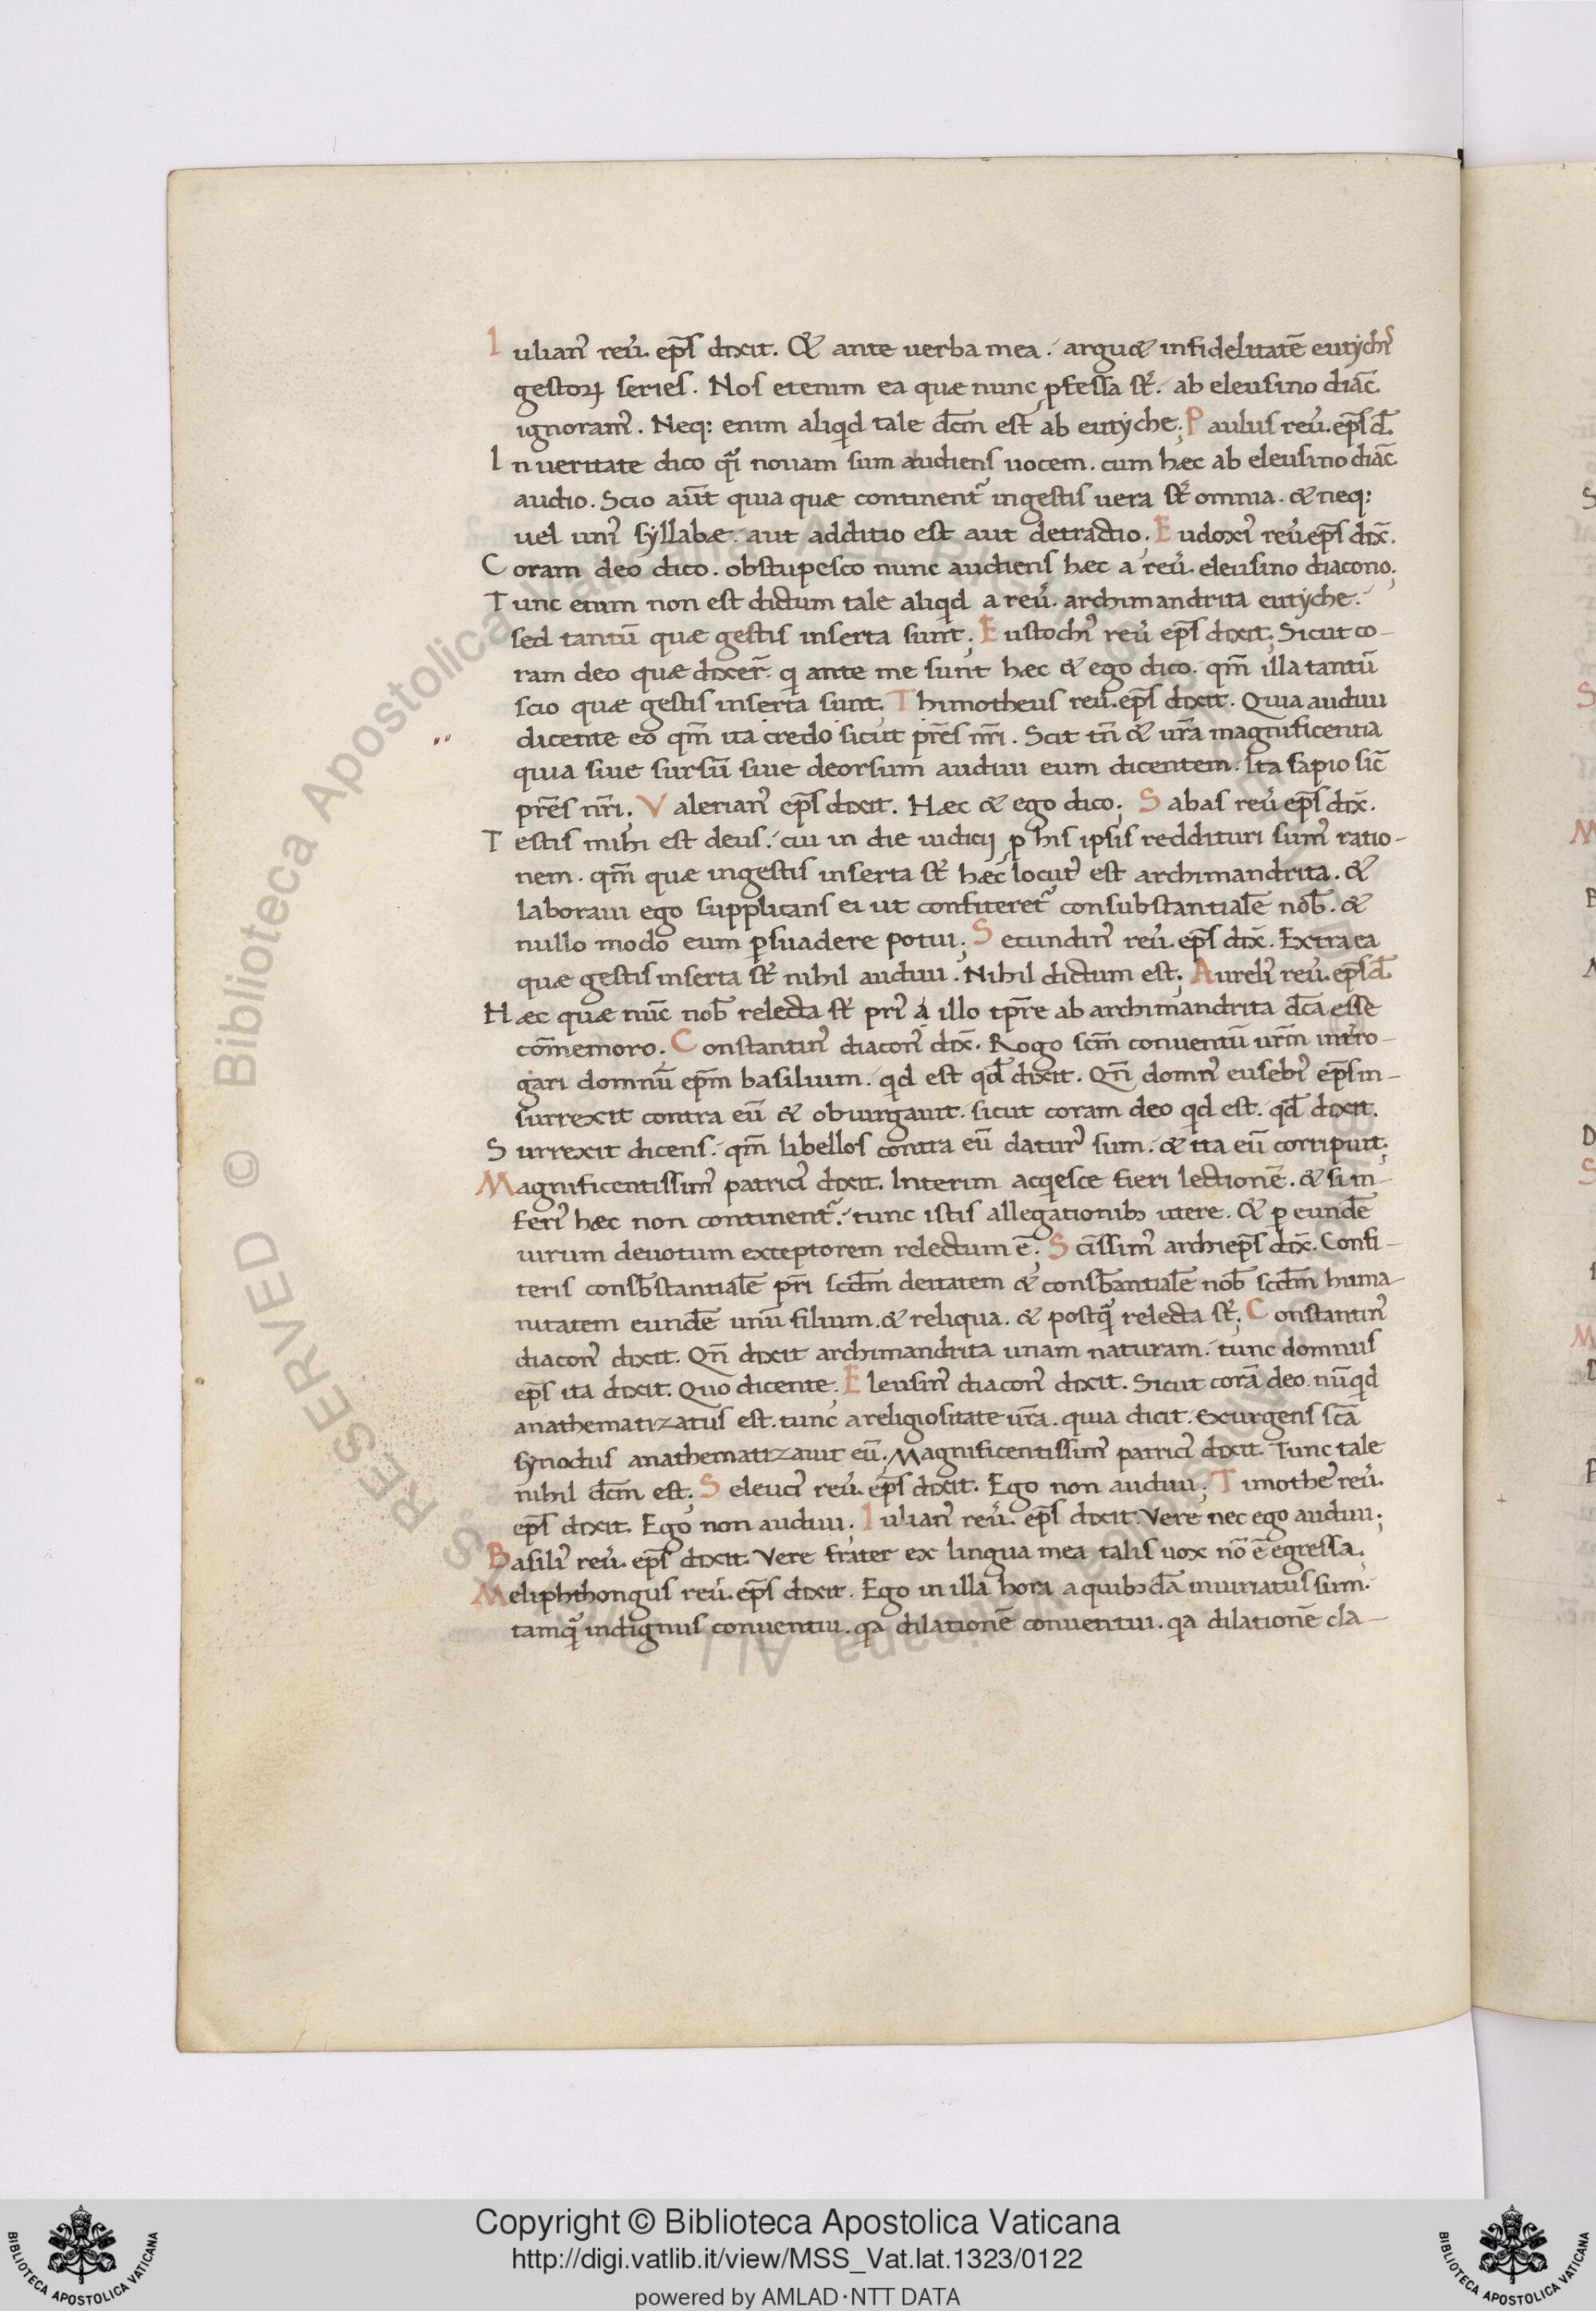 Iulianꝰ reu᷑. ep̅s dixit. & ante uerba mea. arguæ infidelitatē eutychꝭ
gestoꝝ series. Nos etenim ea quæ nunc ꝓfessa st̅. ab eleusino diac̅.
ignoramꝰ. Neq: enim aliqd tale dc̅m est ab eutyche; Paulus reu᷑. ep̅s d̅.
In ueritate dico qꝫ̃ nouam sum audiens uocem. cum hæc ab eleusino diac̅
audio. Scio aut̅ quia quæ continent᷑ in gestis uera st̅ omnia. & neq:
uel unꝰ syllabæ. aut additio est aut detractio; Eudoxiꝰ reu᷑ ep̅s dix̅.
Coram deo dico. obstupesco nunc audiens hæc a reu᷑. eleusino diacono;
Tunc enim non est dictum tale aliqd a reu᷑. archimandrita eutyche.
sed tantū quæ gestis inserta sunt; Eustochiꝰ reu᷑ ep̅s dixit; Sicut co-
ram deo quæ dixer̅. q ante me sunt hæc & ego dico. qm̅ illa tantū
scio quæ gestis inserta sunt. Thimotheus reu᷑. ep̅s dixit. Quia audiui
dicente eo qm̅ ita credo sicut pr̅es nr̅i. Scit tn̅ & ur̅a magnificentia
quia siue sursū siue deorsum audiui eum dicentem. Ita sapio sic̅
pr̅es nr̅i; Valerianꝰ ep̅s dixit. Hæc & ego dico; Sabas reu᷑ ep̅s dix̅.
Testis mihi est deus. cui in die iudicij ꝓ his ipsis reddituri sumꝰ ratio-
nem. qm̅ quæ in gestis inserta st̅ hæc locutꝰ est archimandrita. &
laboraui ego supplicans ei ut confiteret᷑ consubstantialē nob̅. &
nullo modo eum ꝑsuadere potui; Secundinꝰ reu᷑. ep̅s dix̅. Extra ea
quæ gestis inserta st̅ nihil audiui. Nihil dictum est; Aureliꝰ reu᷑. ep̅s d̅.
Hæc quæ nūc nob̅ relecta st̅ priꝰ á illo tp̅re ab archimandrita dc̅a esse
cōmemoro. Constantinꝰ diaconꝰ dix̅. Rogo sc̅m conuentū ur̅m intr̅ro-
gari domnū ep̅m basilium. qd est qd̅ dixit. Qn̅ domnꝰ eusebiꝰ ep̅s in-
surrexit contra eū & obiurgauit. sicut coram deo qd est. qd̅ dixit.
Surrexit dicens. qm̅ libellos contra eū daturꝰ sum. & ita eū corripuit;
Magnificentissimꝰ patriciꝰ dixit. Interim acqesce fieri lectionē. & si in-
feriꝰ hæc non continent᷑. tunc istis allegationibꝫ utere. & ꝑ eundē
uirum deuotum exceptorem relectum ē; Sc̅issimꝰ archiep̅s dix̅. Confi-
teris consb̅stantialē pr̅i scd̅m deitatem & consb̅antialē nob̅ scd̅m huma-
nitatem eundē unū filium. & reliqua. & postqꝫ̃ relecta st̅; Constantinꝰ
diaconꝰ dixit. Qn̅ dixit archimandrita unam naturam. tunc domnus
ep̅s ita dixit. Quo dicente. Eleusinꝰ diaconꝰ dixit. Sicut corā deo. nūqd
anathematizatus est. tunc a religiositate ur̅a. quia dicit. exurgens sc̅a
synodus anathematizauit eū. Magnificentissimꝰ patriciꝰ dixit. Tunc tale
nihil dc̅m est; Seleuciꝰ reu᷑. ep̅s dixit. Ego non audiui; Timotheꝰ reu᷑.
ep̅s dixit. Ego non audiui; Iulianꝰ reu᷑. ep̅s dixit. Vere nec ego audiui;
Basiliꝰ reu᷑. ep̅s dixit. Vere frater ex lingua mea talis uox nō ē egressa.
Meliphthongus reu᷑. ep̅s dixit. Ego in illa hora a quibꝫdā iniuriatus sum.
tamqꝫ̃ indignus conuentui. qa dilationē conuentui. qa dilationē cla-
Copyright © Biblioteca Apostolica Vaticana
http://digi.vatlib.it/view/MSS_Vat.lat.1323/0122
powered by AMLAD·NTT DATA